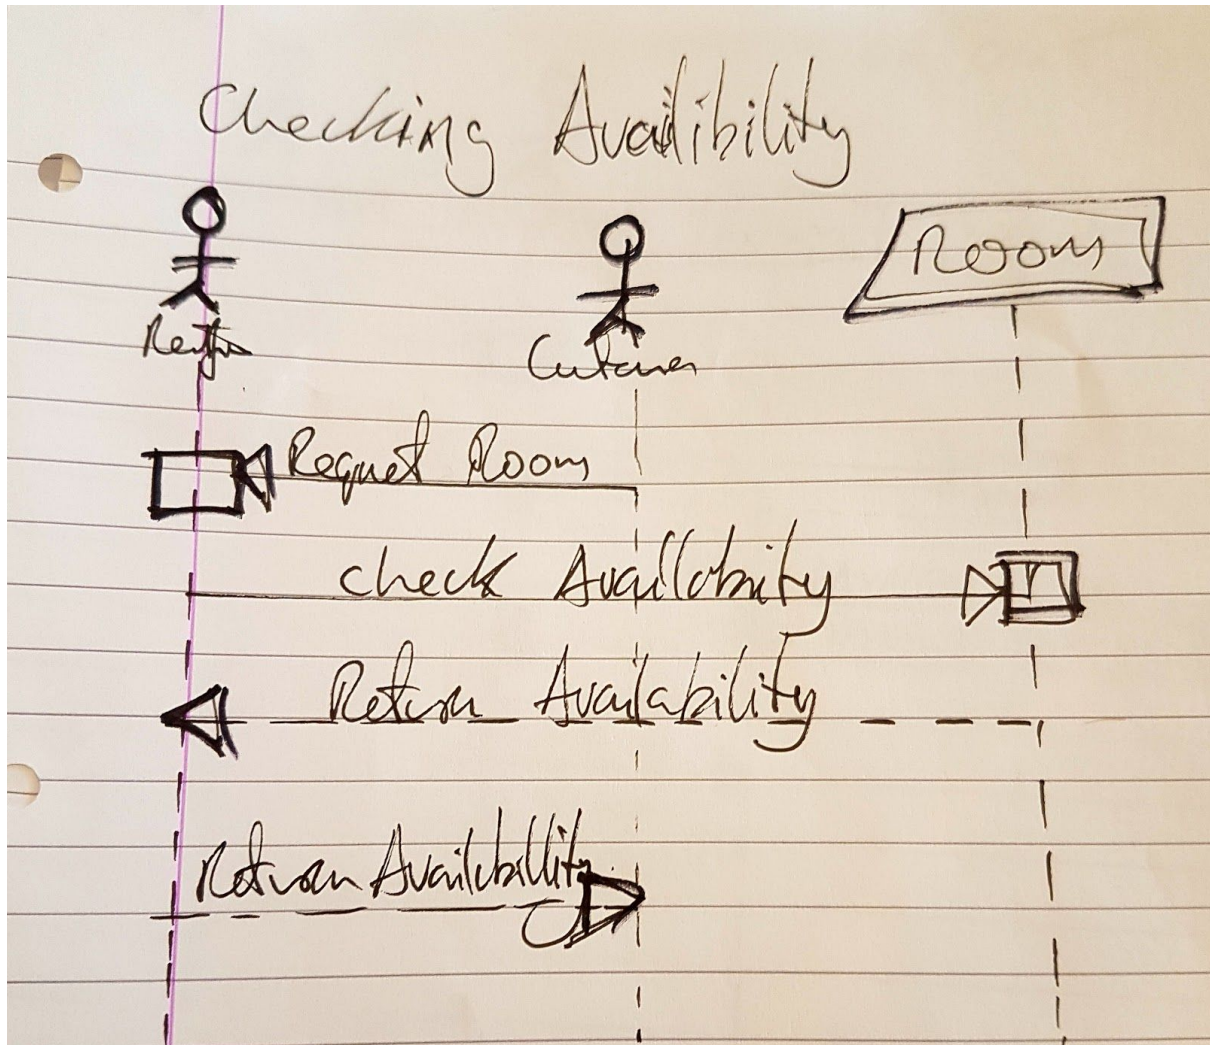 Checking Availibility
Room
Request Room
check Availability
Return Availability
Return Availability